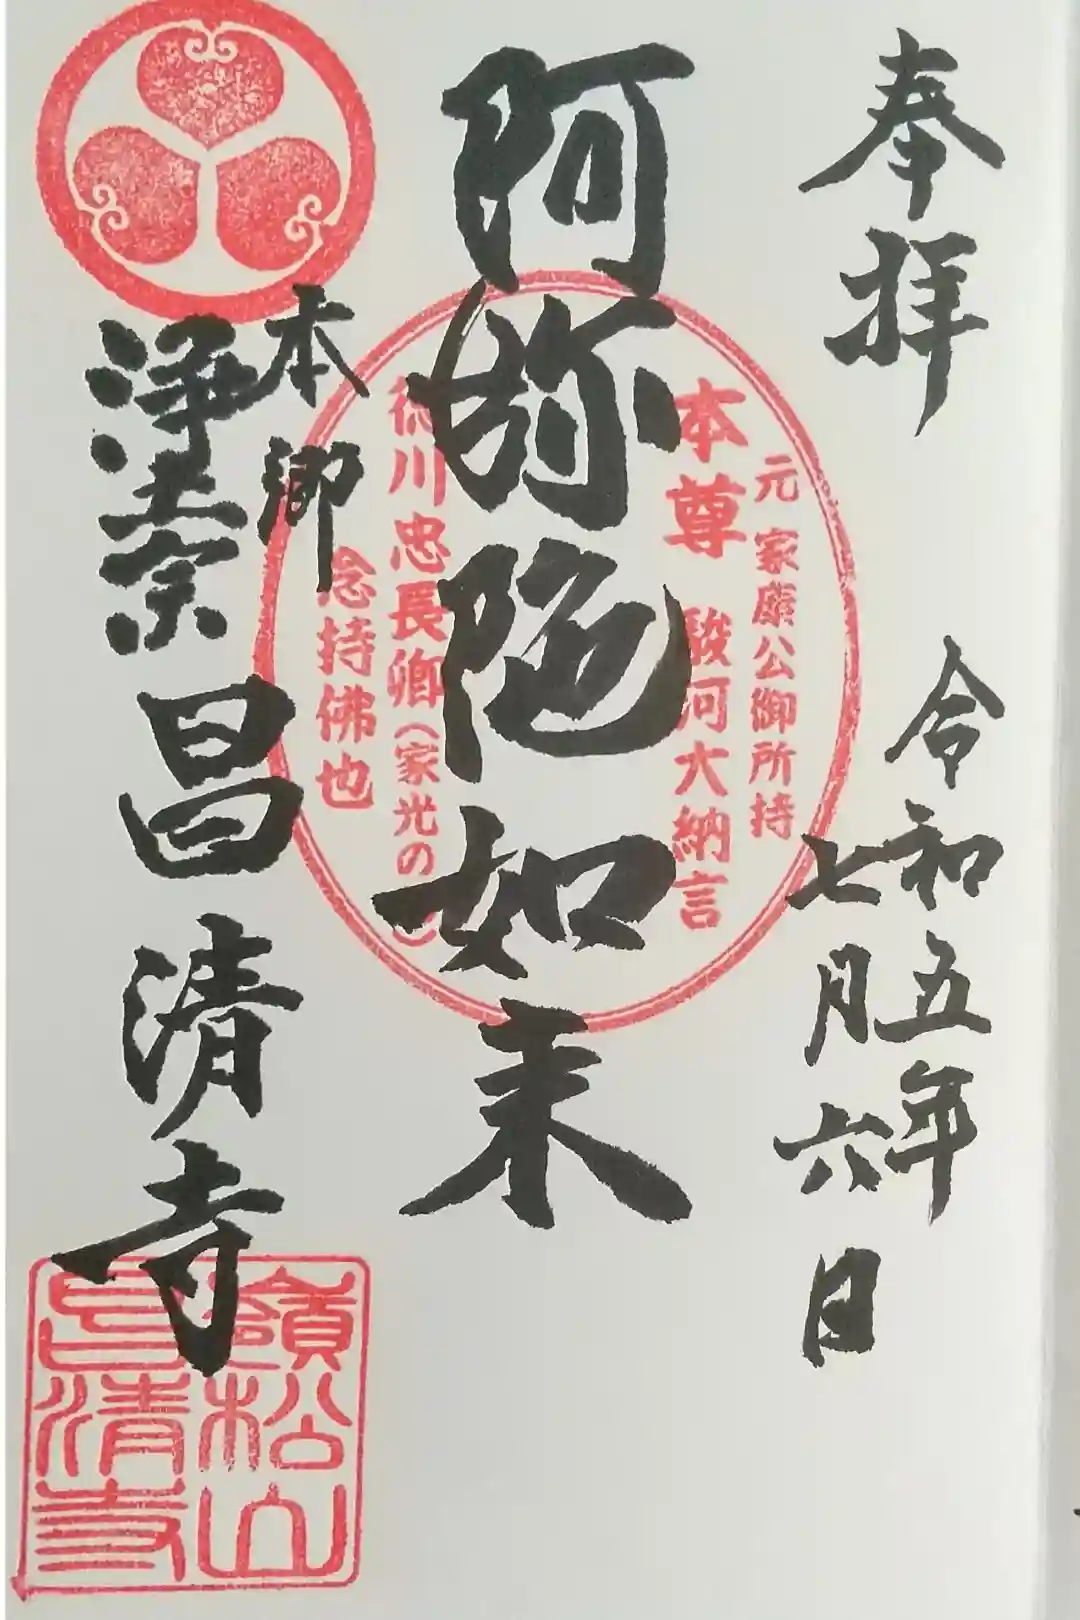 奉拝
令和五年
七月六日
阿弥陀如来
本郷
浄土宗
昌清寺
元家康公御所持
本尊 駿河大納言
徳川忠長卿(家光の
念持佛也
嶺松山
昌清寺